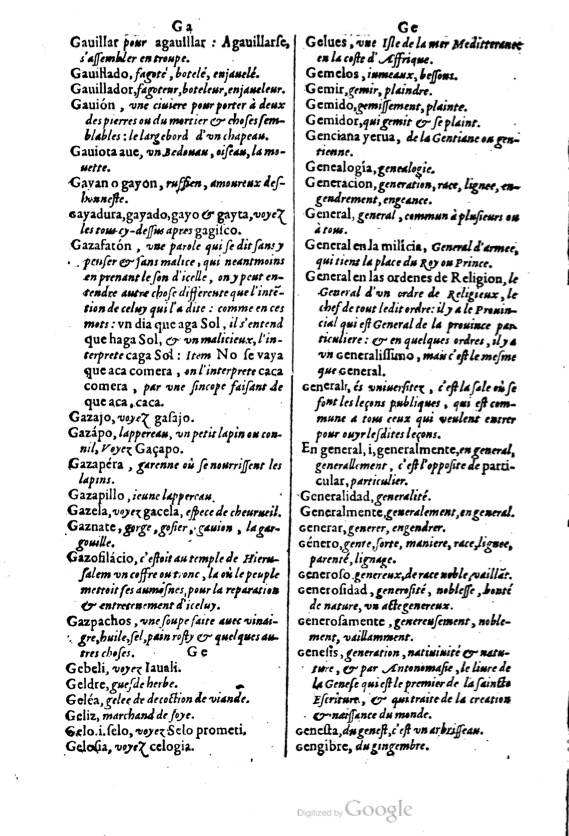 Ga
Gauillar pour agauillar : Agauillarse,
s'assembler en troupe.
Gauillado, fagoté, botelé, enjauelé.
Gauillador, fagoteur, boteleur, enjaueleur.
Gauión, vne ciuiere pour porter à deux
des pierres ou du mortier & choses sem-
blables : le large bord d'vn chapeau.
Gauiota aue, vn Bedouau, oiseau, la mo-
uette.
Gayan o gayón, ruffien, amoureux des-
honneste.
gayadura, gayado, gayo & gayta, voyez
les tous cy-dessus apres gagisco.
Gazafatón, vne parole qui se dit sans y
penser & sans malice, qui neantmoins
en prenant le son d'icelle, on y peut en-
tendre autre chose differente que l'intẽ-
tion de celuy qui l'a dite : comme en ces
mots : vn dia que aga Sol, il s'entend
que haga Sol, & vn malicieux, l'in-
terprete caga Sol : Item No se vaya
que aca comera, on l'interprete caca
comera, par vne sincope faisant de
que aca, caca.
Gazajo, voyez gasajo.
Gazápo, lappereau, vn petit lapin ou con-
nil, Voyez Gaçapo.
Gazapéra, garenne où se nourrissent les
lapins.
Gazapillo, ieune lappereau
Gazela, voyez gacela, espece de cheureuil.
Gaznate, gorge, gosier, gauion, la gar-
gouille.
Gazofilácio, c'estoit au temple de Hieru-
salem vn coffre ou tronc, là où le peuple
mettoit ses aumosnes, pour la reparation
& entretenement d'iceluy.
Gazpachos, vne soupe faite auec vinai-
gre, huile, sel, pain rosty & quelques au-
tres choses.
Ge
Gebeli, voyez Iauali.
Geldre, guesde herbe.
Geléa, gelee de decoction de viande.
Geliz, marchand de soye.
Gelo. i. selo, voyez Selo prometi.
Gelosia, voyez celogia.
Ge
Gelues, vne Isle de la mer Mediterranee
en la coste d'Affrique.
Gemelos, iumeaux, bessons.
Gemir, gemir, plaindre.
Gemido, gemissement, plainte.
Gemidor, qui gemit & se plaint.
Genciana yerua, de la Gentiane ou gen-
tienne.
Genealogía, genealogie.
Generacion, generation, race, lignee, en-
gendrement, engeance.
General, general, commun à plusieurs ou
à tous.
General en la milícia, General d'armee,
qui tient la place du Roy ou Prince.
General en las ordenes de Religion, le
General d'vn ordre de Religieux, le
chef de tout ledit ordre : il y a le Prouin-
cial qui est General de la prouince par-
ticuliere : & en quelques ordres, il y a
vn generalissimo, mais c'est le mesme
que General.
general, és vniuersitez, c'est la sale où se
font les leçons publiques, qui est com-
mune à tous ceux qui veulent entrer
pour ouyr lesdites leçons.
En general, i, generalmente, en general,
generallement, c'est l'opposite de parti-
cular, particulier.
Generalidad, generalité.
Generalmente, generalement, en general.
generar, generer, engendrer.
género, gente, sorte, maniere, race, lignee,
parenté, lignage.
generoso, genereux, de race noble, vaillãt.
generosidad, generosité, noblesse, bonté
de nature, vn acte genereux.
generosamente, genereusement, noble-
ment, vaillamment.
genesis, generation, natiuinité & natu-
ture, & par Antonomasie, le liure de
la Genese qui est le premier de la saincte
Escriture, & qui traite de la creation
& naissance du monde.
genesta, du genest, c'est vn arbrisseau.
gengibre, du gingembre.
Digitized by Google